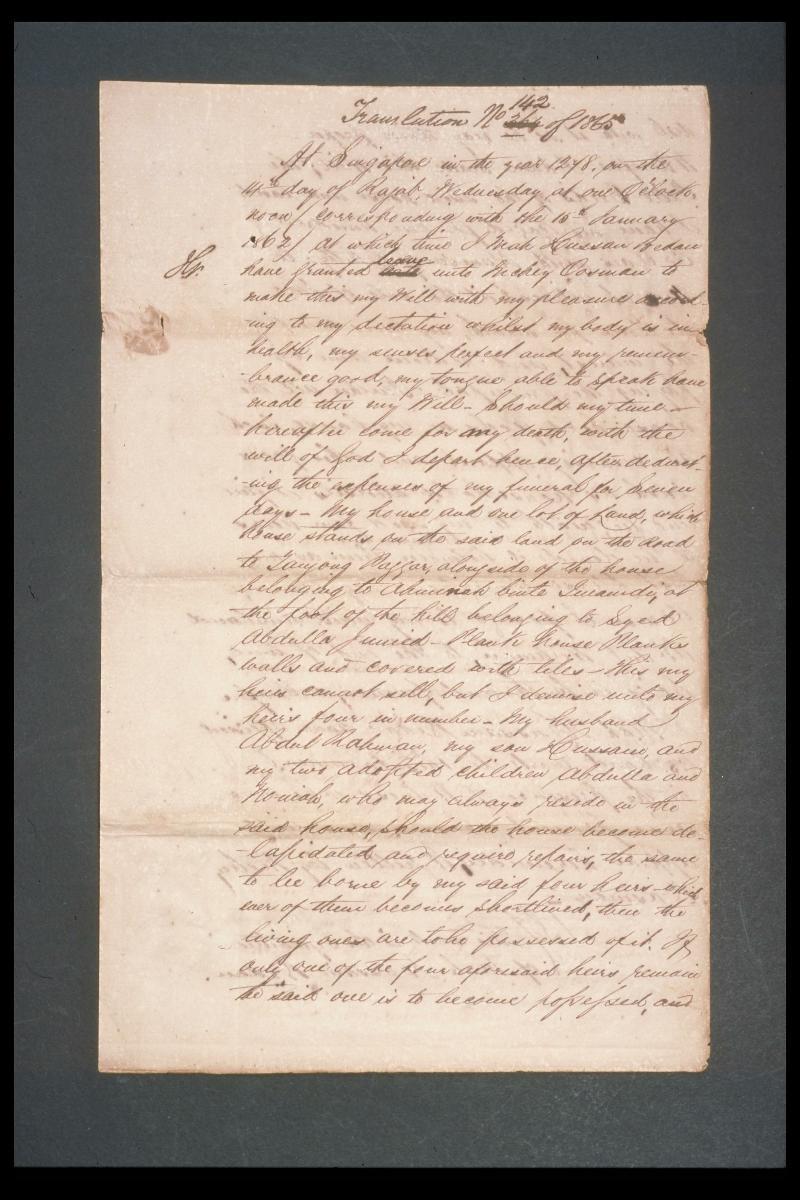 142
Translation No 364 of 1865
At Singapore in the year 1278. on the
14th day of Rajab, Wednesday, at one O'Clock
noon/ corresponding with the 15th January
1862/ at which time I Mah Hussan Bedan
leave
Hr. have granted unto Inchey Oosman to
make this my Will with my pleasure accord-
ing to my dictation whilst my body is in
health, my senses perfect and my remem-
-brance good, my tongue able to speak have
made this my Will - Should my time -
hereafter come for my death, with the
will of God I depart hence, after deduct-
-ing the expenses of my funeral for Seven
days - My house and one lot of Land, which
house stands on the said land on the Road
to Tanjong Paggar, alongside of the house
belonging to Adminah binte Imamdi, at
the foot of the hill belonging to Syed
Abdulla Junied - Plank House Planks
walls and covered with tiles - this my
heirs cannot sell, but I demise unto my
heirs four in number - My husband
Abdul Rahman, my son Hussain, and
my two adopted children, Abdulla and
who may always reside in the
said house, should the house become de-
-lapidated and require repairs, the same
to be borne by my said four heirs - which
ever of them becomes shortlived, then the
living ones are to be possessed of it. If
only one of the four aforesaid heirs remain
the said one is to become possessed, and